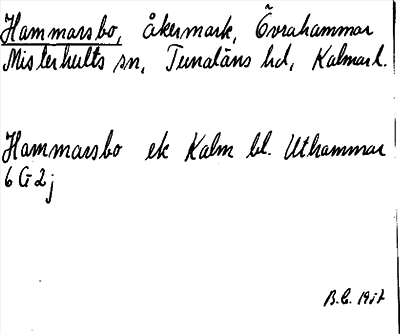 Hammarsbo, åkermark, Övrahammar
Misterhults sn, Tunaläns hd, Kalmar l.
Hammarsbo ek Kalm bl. Uthammar
6 G 2 j
B.C. 1937